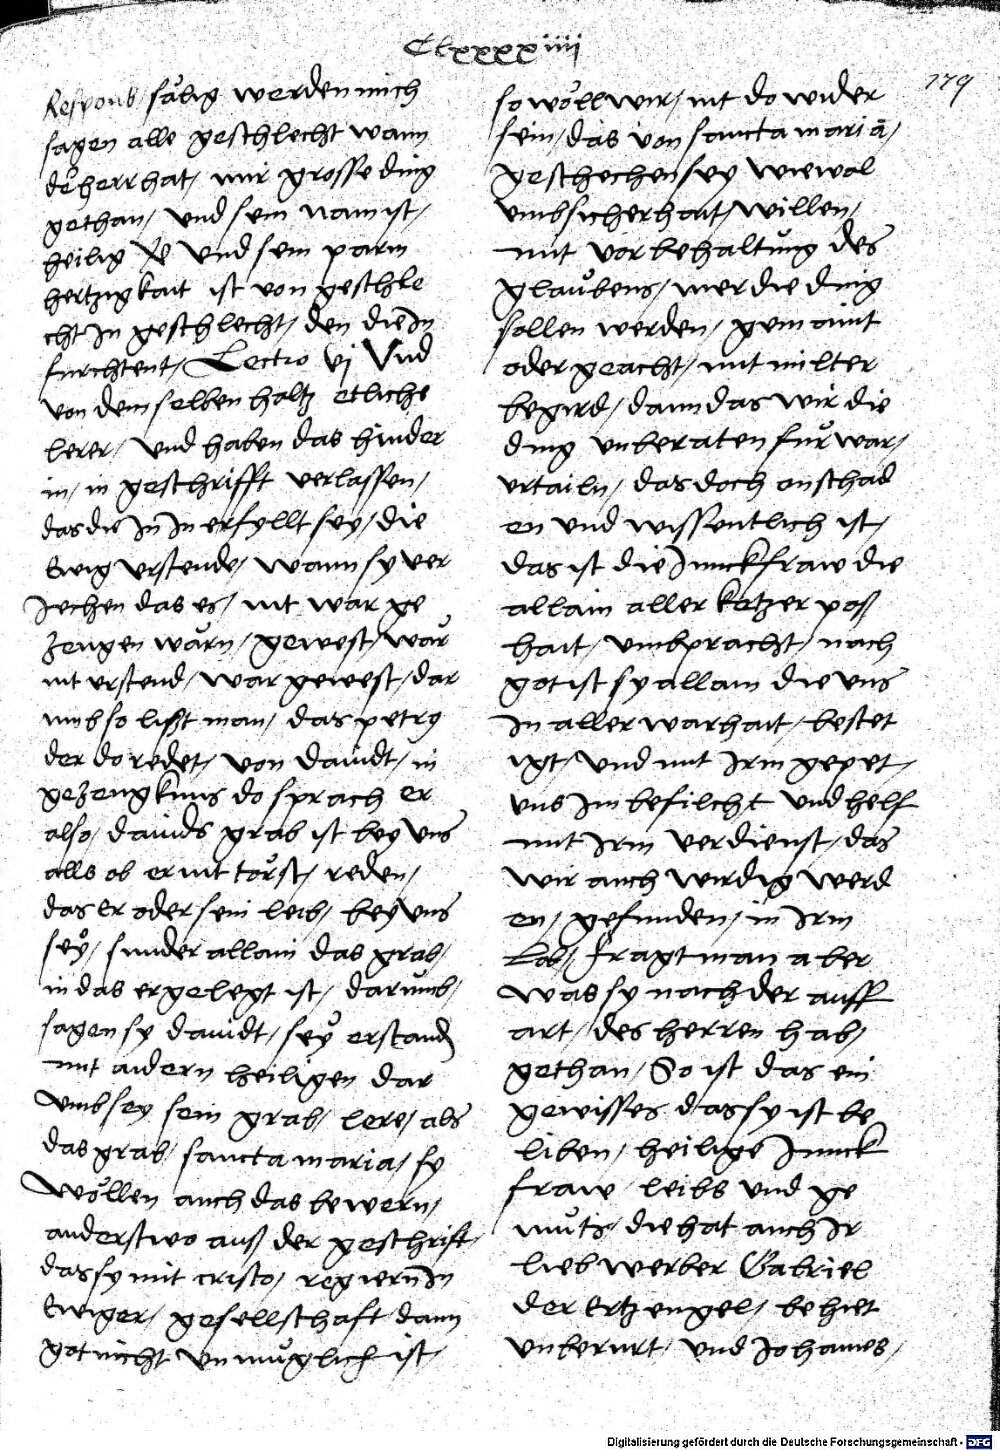 Clxxxxiiii
179
Respons / sälig werden mich
sagen alle geschlecht wann
der herr hat / mir grosse ding
gethan / und sein nam ist /
heilig V und sein parm
hertzigkait ist von geschle
cht In geschlecht / den die In
furchtent / Lectio vj Und
von dem selben haltz etliche
lerer / und haben das hinder
in / in geschrifft verlassen /
das die In In erfyllt sey / die
Ewig urstende / wann sy ver
Jechen das es / nit war ge
zeugen wärn / gewest / wär
nit urstend / war gewest / dar
umb so lißt man / das petrg
der do redet / von dauidt / in
gezengknus do sprach er
also / dauids grab ist bey uns
alls ob er nit törst / reden /
das Er oder sein leib / bey uns
seÿ / sunder allain das grab /
in das er gelegt ist / darumb /
sagen sy dauidt / seÿ erstand
mit andern heiligen dar
umb sey sein grab / lere / als
das grab / sancta maria / sy
wöllen auch das bewern /
anderstwo auß der geschrift
das sy mit cristo / regiern In
Ewiger / gesellschaft dann
got nicht unmüglich ist /
so wöll wir / nit do wider
sein / das von sancta mariā /
geschechen sey wie wol
umb sicherhait / willen /
mit vorbehaltung des
glaubens / mer die ding
sollen werden / gemaint
oder geacht / mit milter
begird / dann das wir die
ding unberaten fur war /
urtailn / das doch on schad
en und wissentlich ist /
das ist die Junckfraw die
allain aller ketzer poß
hait / umbpracht / nach
got ist sy allain die uns
In aller warhait / bestet
igt / und mit Irm gepet /
uns Im befilcht und helf
mit Irm verdienst / das
wir auch wirdig werd
en / gefunden / in Irm
Lob / fragt man aber
was sy nach der auff
art / des herren hab /
gethan / So ist das ein
gewisses das sy ist be
liben / heilige Junck
fraw / leibs und ge
müts / die hat auch Ir
lieb werber Gabriel
der Ertzengel / behiet
unberurt / und Johannes /
Digitalisierung gefördert durch die Deutsche Forschungsgemeinschaft - DFG